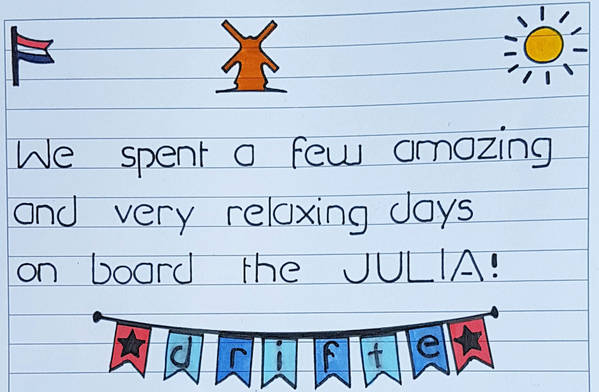 We spent a few amazing
and very relaxing days
on board the JULIA!
drifte